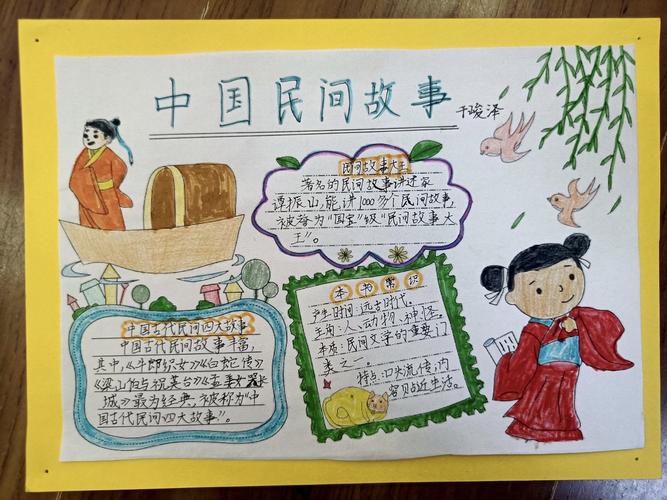 中国民间故事
于峻泽
民间故事大王
著名的民间故事讲述家
谭振山,能讲1000多个民间故事,
被誉为“国宝”级“民间故事大
王”。
本书常识
产生时间:远古时代。
主角:人、动物、神、怪。
本质:民间文学的重要门
类之一。
特点:口头流传,内
容贝占近生活。
中国古代民间四大故事
中国古代民间故事丰富,
其中,《牛郎织女》《白蛇传》
《梁山伯与祝英台》《孟姜女哭长
城》最为经典,被称为“中
国古代民间四大故事”。